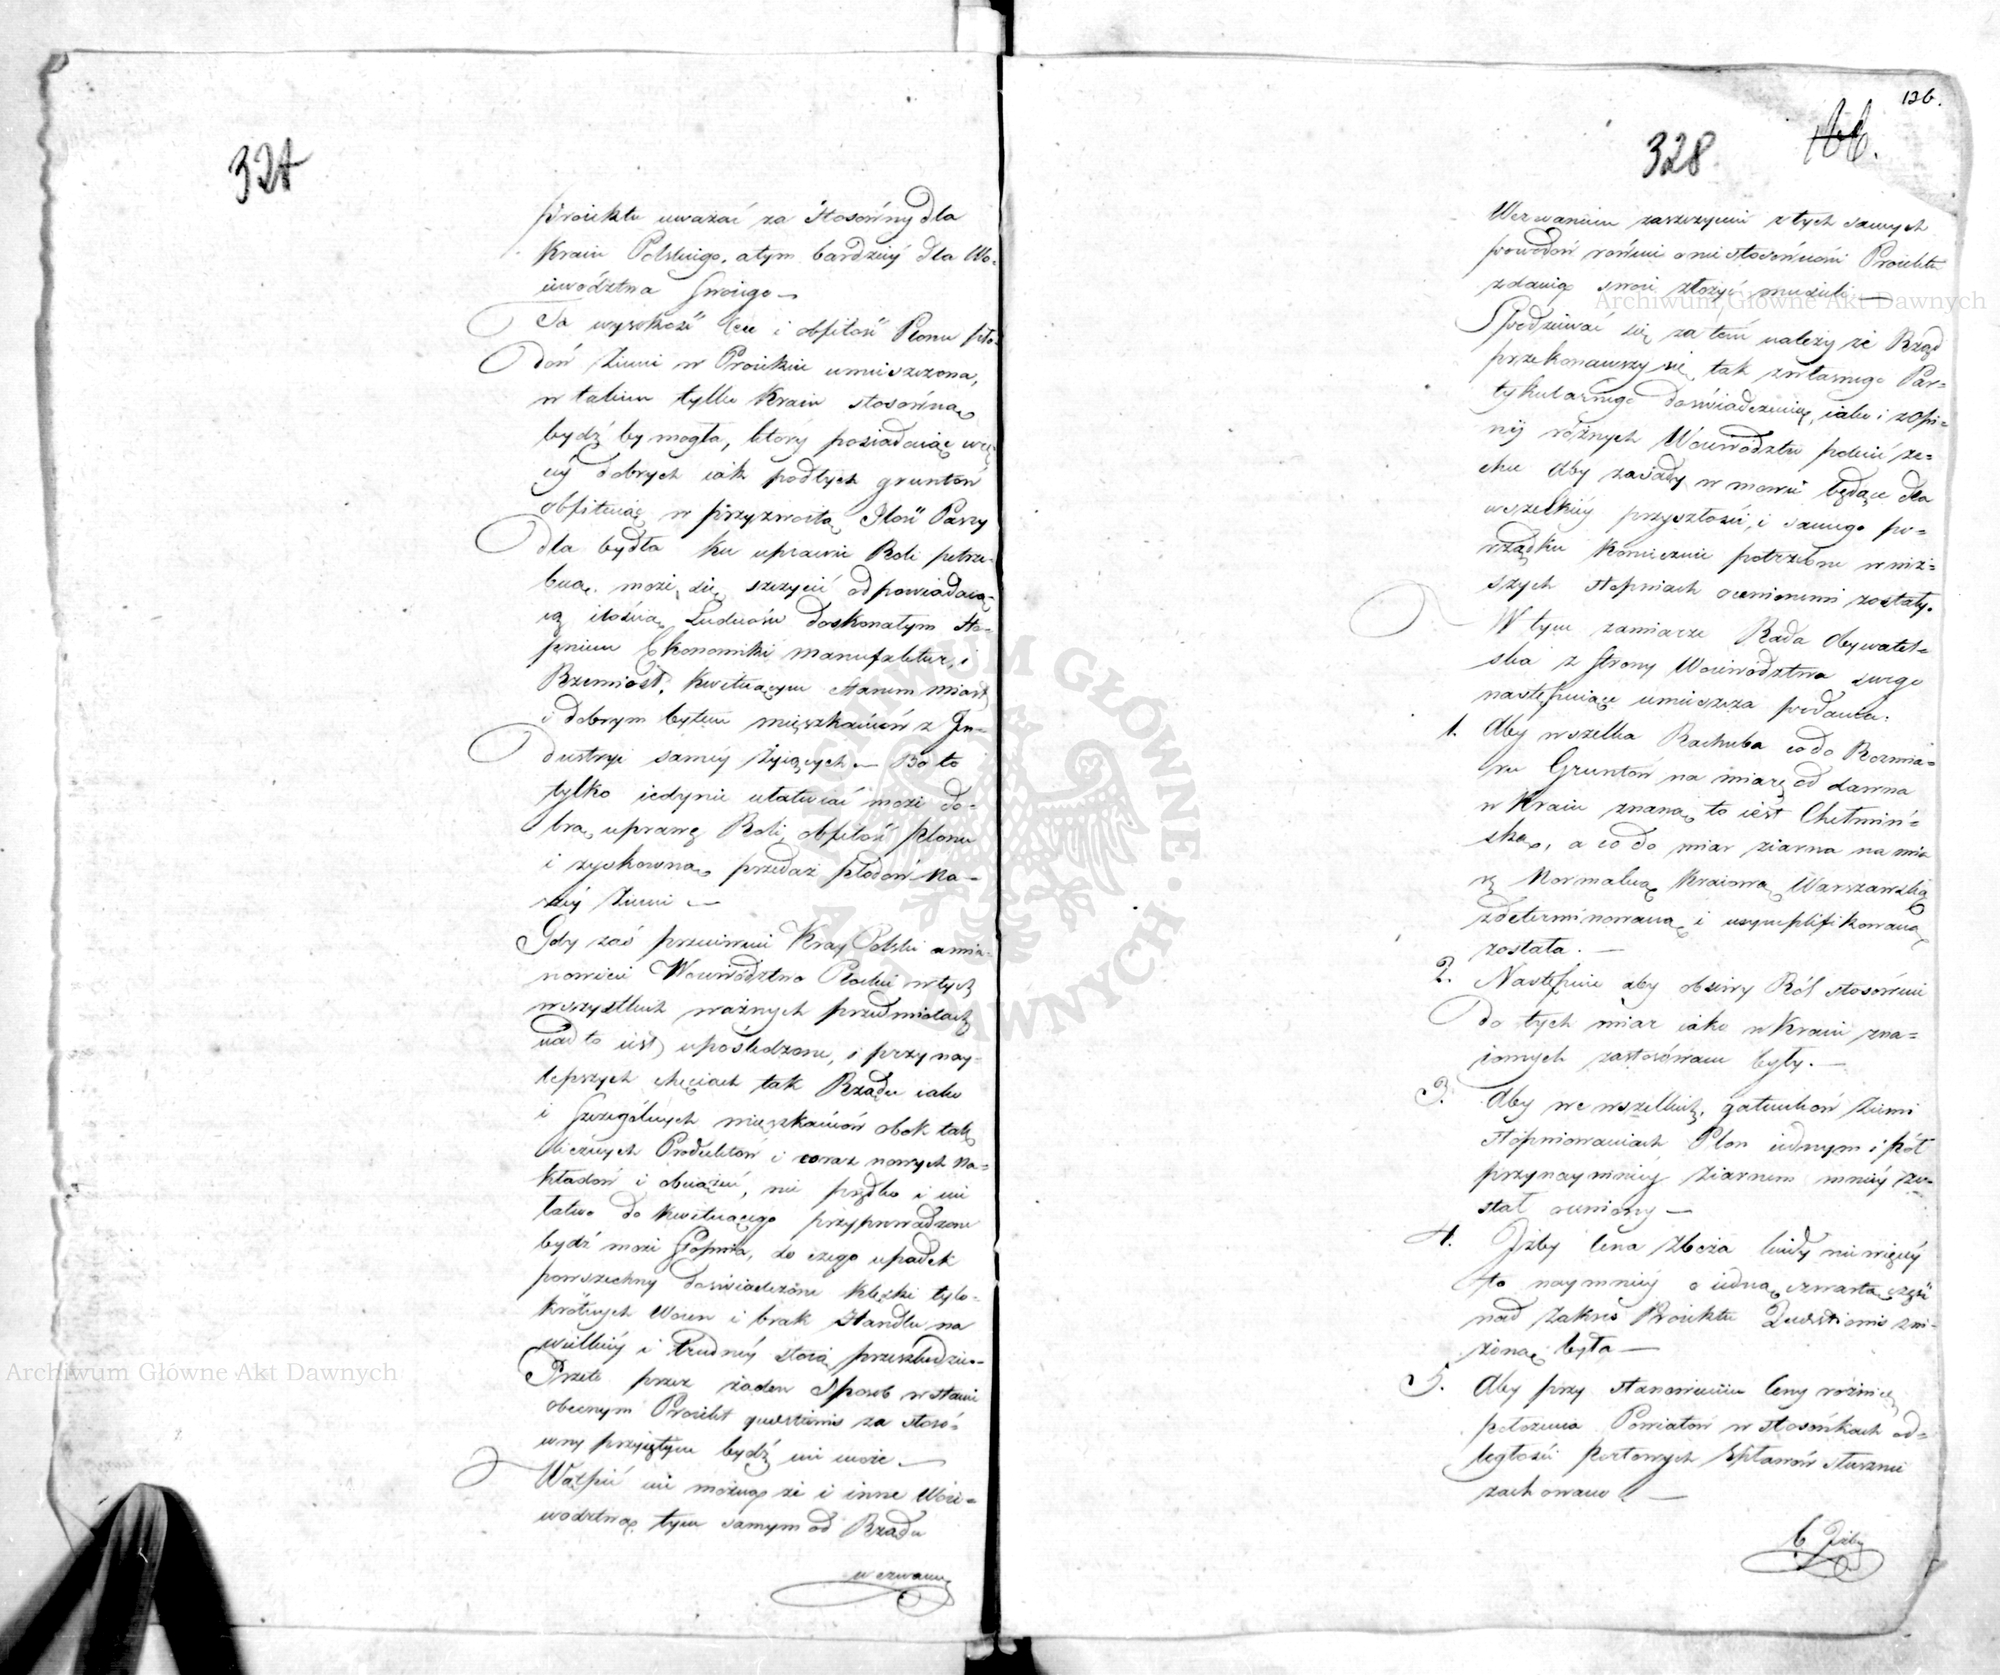 327
Proiektu uważać za stosowny dla
Kraiu Polskiego, a tym bardziey dla Wo-
iewództwa Swoiego —
Ta wysokość Cen i obfitość Plonu pło-
dów Ziemi w Proiekcie umieszczona,
w takim tylko Kraiu stosowną
bydź by mogła, który posiadaiąc wię-
cey dobrych iak podłych gruntów
obfituiąc w przyzwoitą Ilość Paszy
dla bydła ku uprawie Roli potrze-
bną, może się szczycić odpowiadaią-
cą ilością Ludności doskonałym sto-
pniem Ekonomiki manufaktur, i
Rzemiosł, kwitnącym stanem miast
i dobrym bytem mieszkańców z In-
dustryi samey żyiących — Bo to
tylko iedynie ułatwiać może do-
brą uprawę Roli, obfitość plonu
i zyskowną przedaż płodów na-
szey Ziemi —
Gdy zaś przeciwnie Kray Polski a mia-
nowicie Woiewództwo Płockie w tych
wszystkich ważnych przedmiotach
nadto iest upośledzone, i przy nay-
lepszych chęciach tak Rządu iako
i Szczególnych mieszkańców obok tak
licznych Produktów i coraz nowych na-
kładów i obciążeń, nie prędko i nie
łatwo do kwitnącego przyprowadzone
bydź może Stopnia, do czego upadek
powszechny doświadczone klęski tylo-
krotnych Woien i brak Handlu na
wielkiey i trudney stoią przeszkodzie —
Przeto przez żaden Sposób w stanie
obecnym Proiekt questionis za stoso-
wny przyiętym bydź nie może —
Wątpić nie można że i inne Woie-
wództwa tym samym od Rządu
wezwaniem
136.
328 166.
Wezwaniem zaszczycone z tych samych
powodów równie o niestosowności Proiektu
zdanie swoie złożyć musieli —
Spodziewać się zatem należy że Rząd
przekonawszy się tak z własnego Par-
tykularnego doświadczenia, iako i z Opi-
nij różnych Woiewództw polecić ze-
chce aby zasady w mowie będące dla
wszelkiey przyszłości, i samego po-
rządku koniecznie potrzebne w niż-
szych stopniach ocenionemi zostały.
W tym zamiarze Rada Obywatel-
ska z Strony Woiewództwa swego
następuiące umieszcza podania:
1. Aby wszelka Rachuba co do Rozmia-
ru Gruntów na miarę od dawna
w Kraiu znaną to iest Chełmiń-
ską, a co do miar ziarna na mia-
rę Normalną Kraiową Warszawską
zdeterminowaną i usymplifikowaną
została. —
2. Następnie aby obsiewy Ról stosownie
do tych miar iako w Kraiu zna-
iomych zastosowane były. —
3. Aby we wszelkich gatunków Ziemi
stopniowaniach Plon iednym i pół
przynaymniey ziarnem mniey zo-
stał oceniony —
4. Iżby Cena Zboża kiedy nie więcey
to naymniey o iedną czwartą część
nad Zakres Proiektu Questionis zni-
żoną była —
5. Aby przy stanowieniu Ceny różnice
położenia Powiatów w stosunkach od-
ległości portowych Spławów słusznie
zachowano —
6. Iżby
Archiwum Główne Akt Dawnych
Archiwum Główne Akt Dawnych
ARCHIWUM GŁÓWNE AKT DAWNYCH